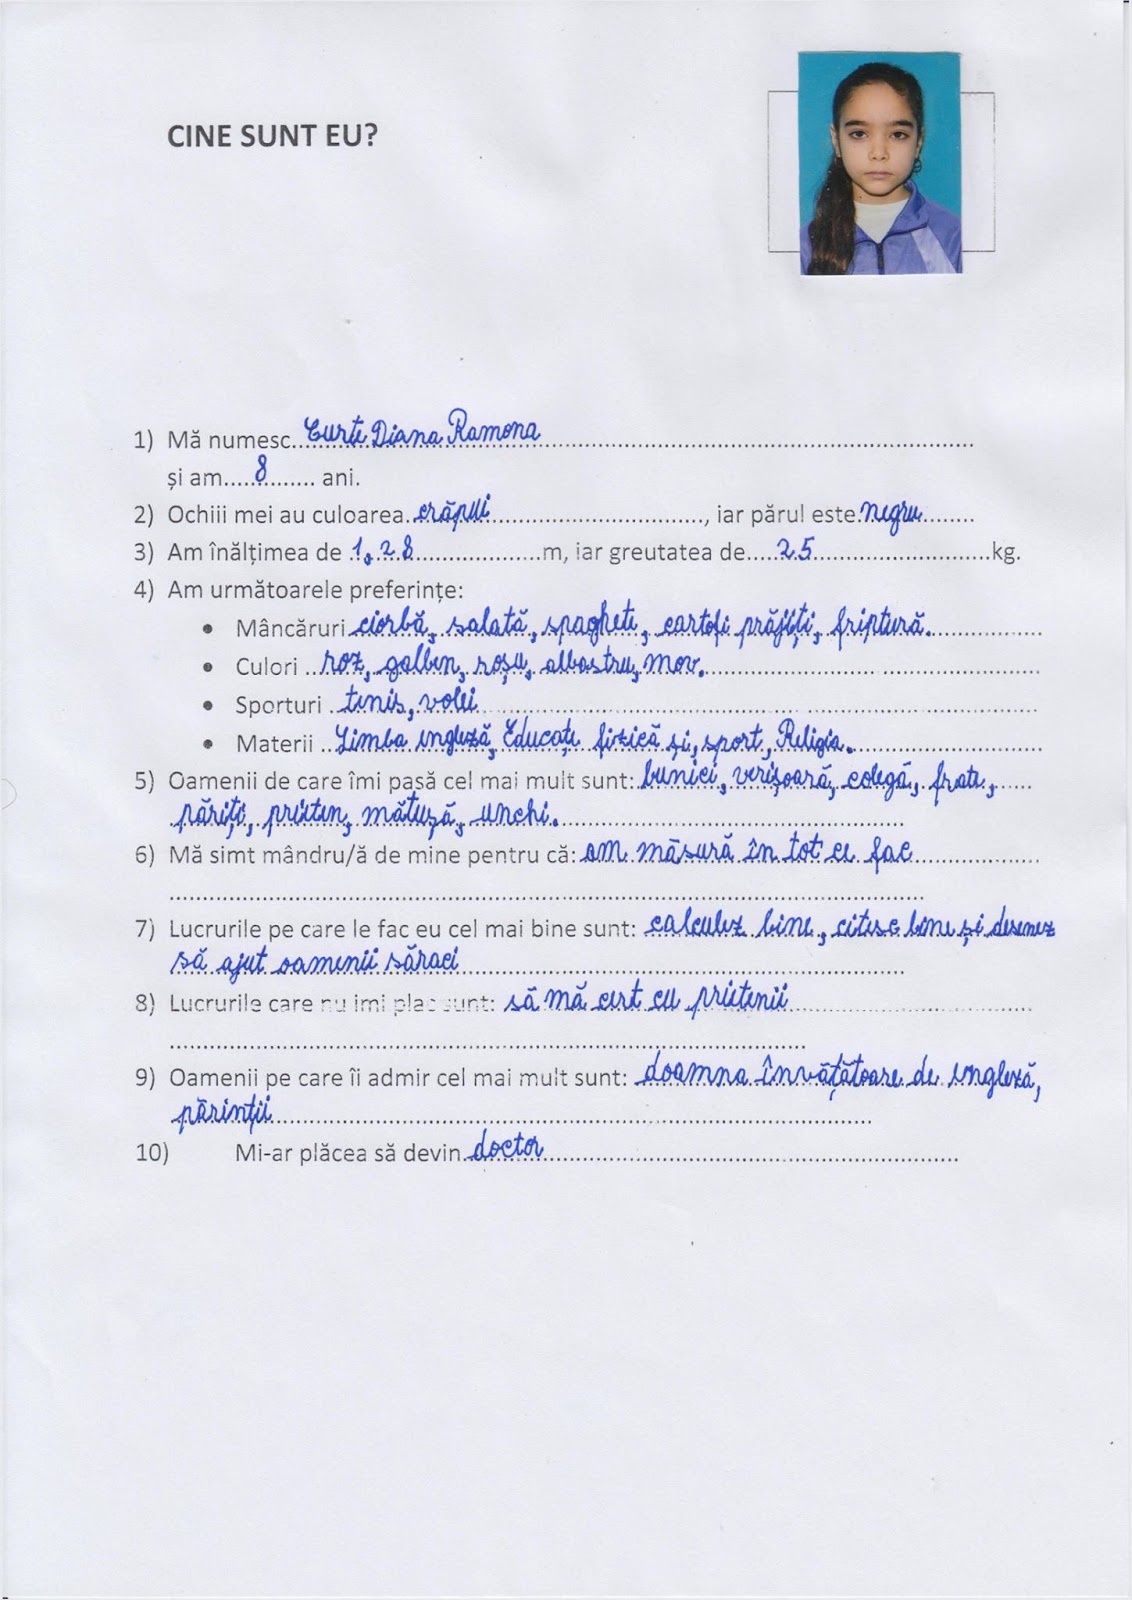 CINE SUNT EU?
1) Mă numesc Curte Diana Ramona
și am 8 ani.
2) Ochiii mei au culoarea crăpui, iar părul este negru
3) Am înălțimea de 1,28 m, iar greutatea de 25 kg.
4) Am următoarele preferințe:
• Mâncăruri ciorbă, salată, spaghete, cartofi prăjiți, friptură.
• Culori roz, galben, roșu, albastru, mov.
• Sporturi tenis, volei
• Materii Limba engleză, Educație fizică și, sport, Religia.
5) Oamenii de care îmi pasă cel mai mult sunt: bunici, verișoară, colegă, frate,
părinți, prieten, mătușă, unchi.
6) Mă simt mândru/ă de mine pentru că: am măsură în tot ce fac
7) Lucrurile pe care le fac eu cel mai bine sunt: calculez bine, citesc bine și desenez
să ajut oamenii săraci
8) Lucrurile care nu imi plac sunt: să mă cert cu prietenii
9) Oamenii pe care îi admir cel mai mult sunt: doamna învățătoare de engleză,
părinții
10) Mi-ar plăcea să devin doctor